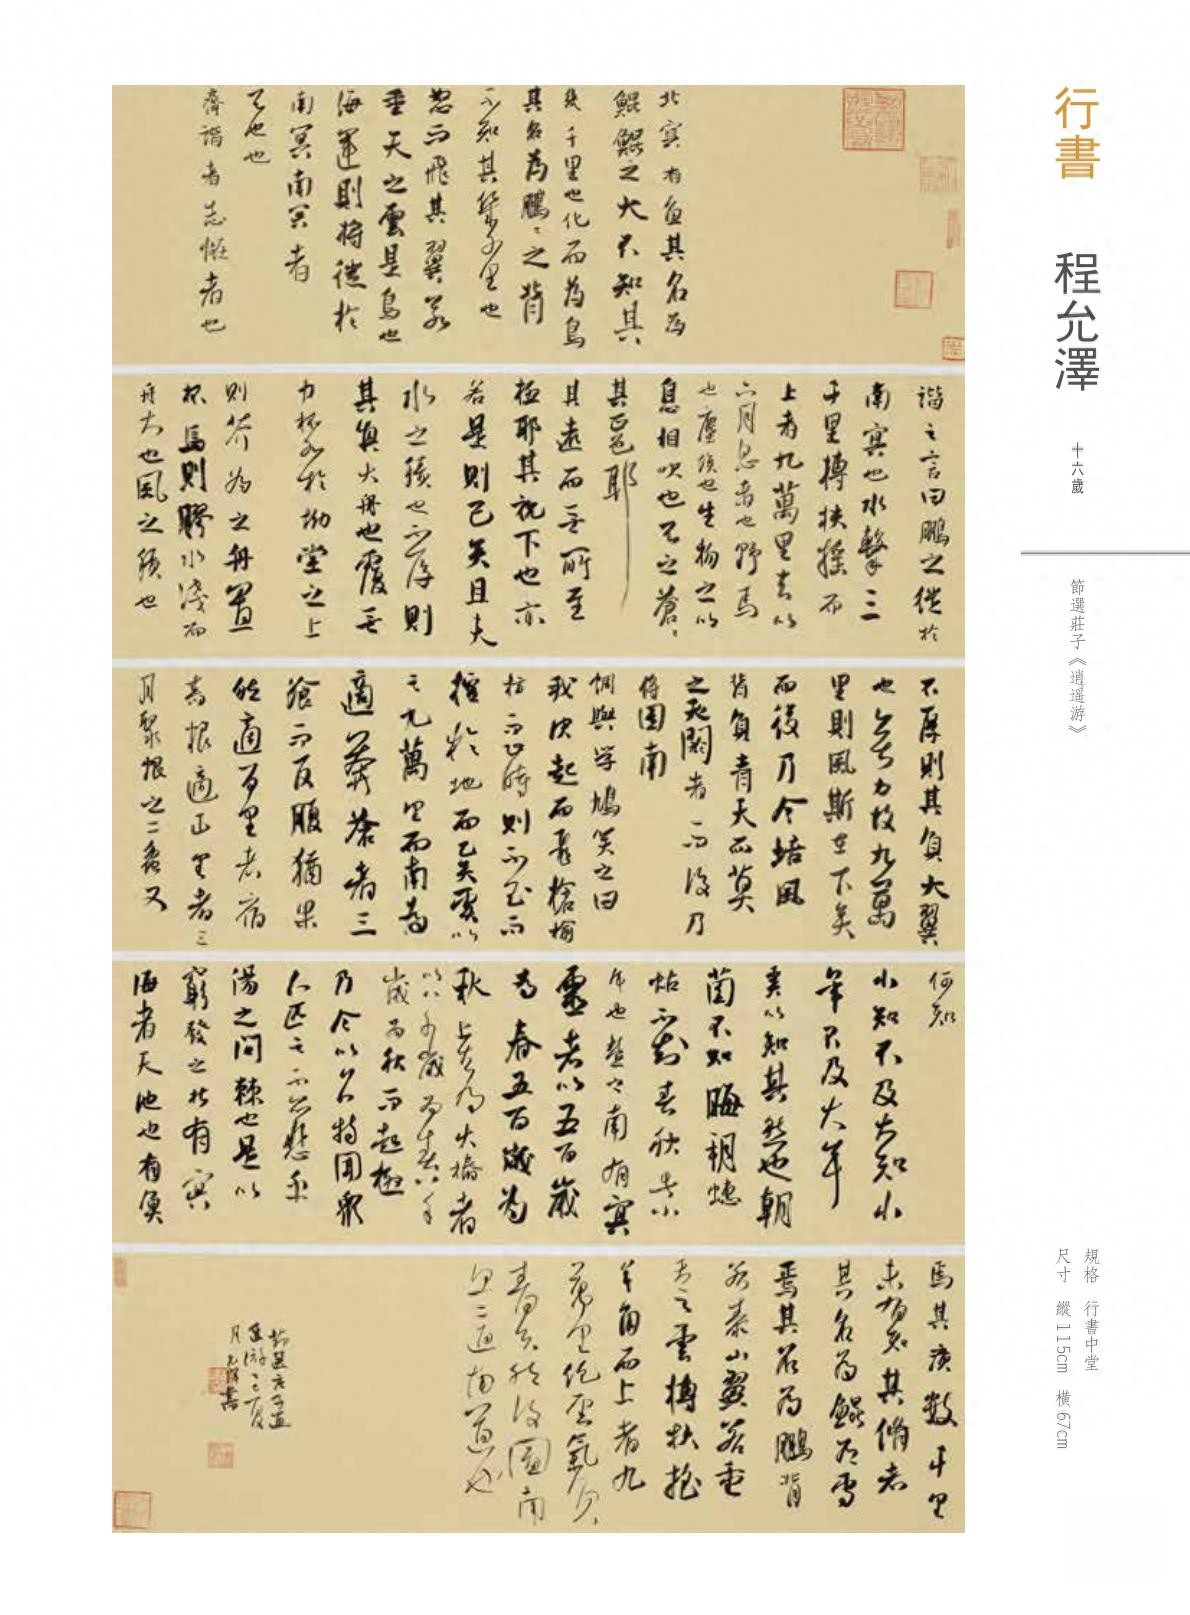 行書
程允澤
十六歲
節選莊子《逍遥游》
規格 行書中堂
尺寸 縱115cm 橫67cm
北冥有魚其名為
鯤鯤之大不知其
幾千里也化而為鳥
其名為鵬〻之背
不知其幾千里也
怒而飛其翼若
垂天之雲是鳥也
海運則將徙於
南冥南冥者
天池也
齊諧者志怪者也
諧之言曰鵬之徙於
南冥也水擊三
千里摶扶搖而
上者九萬里去以
六月息者也野馬
也塵埃也生物之以
息相吹也天之蒼〻
其正色耶
其遠而無所至
極耶其視下也亦
若是則已矣且夫
水之積也不厚則
其負大舟也覆無
力杯水於坳堂之上
則芥為之舟置
杯焉則膠水淺而
舟大也風之積也
不厚則其負大翼
也無力故九萬
里則風斯在下矣
而後乃今培風
背負青天而莫
之夭閼者而後乃
將圖南
蜩與学鳩笑之曰
我決起而飛槍榆
枋而止時則不至而
控於地而已矣奚以
之九萬里而南為
適莽蒼者三
飧而反腹猶果
然適百里者宿
舂糧適千里者三
月聚糧之二蟲又
何知
小知不及大知小
年不及大年
奚以知其然也朝
菌不知晦朔蟪
蛄不知春秋此小
年也楚之南有冥
靈者以五百歲
為春五百歲為
秋上古有大椿者
以八千歲為春八千
歲為秋而彭祖
乃今以久特聞眾
人匹之不亦悲乎
湯之問棘也是以
窮髮之北有冥
海者天池也有魚
焉其廣數千里
未有知其脩者
其名為鯤有鳥
焉其名為鵬背
若泰山翼若垂
天之雲摶扶搖
羊角而上者九
萬里絕雲氣負
青天然後圖南
且適南冥也